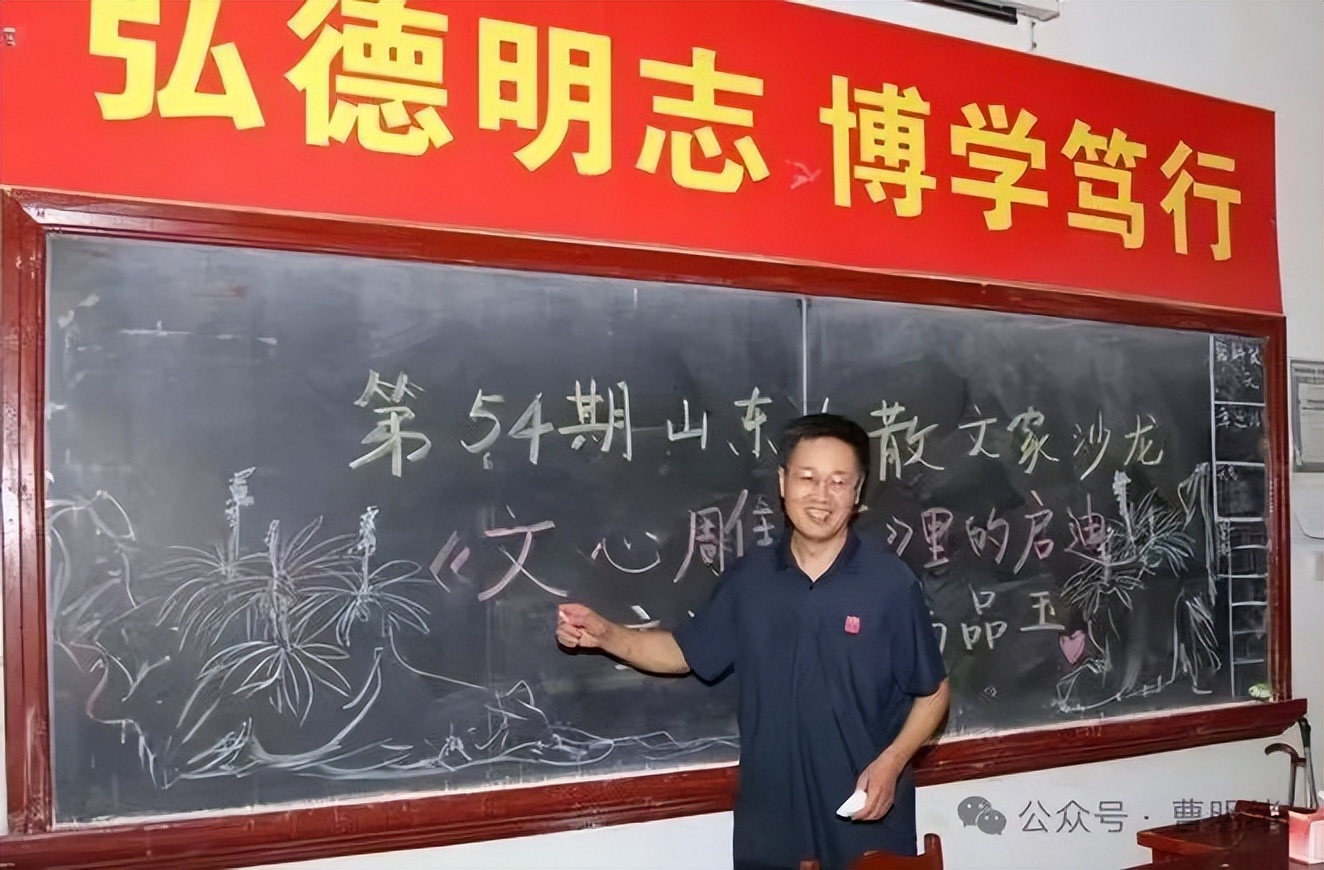 弘德明志 博学笃行
第54期山东散文家沙龙
《文心雕》里的启迪
品玉
公众号·曹明